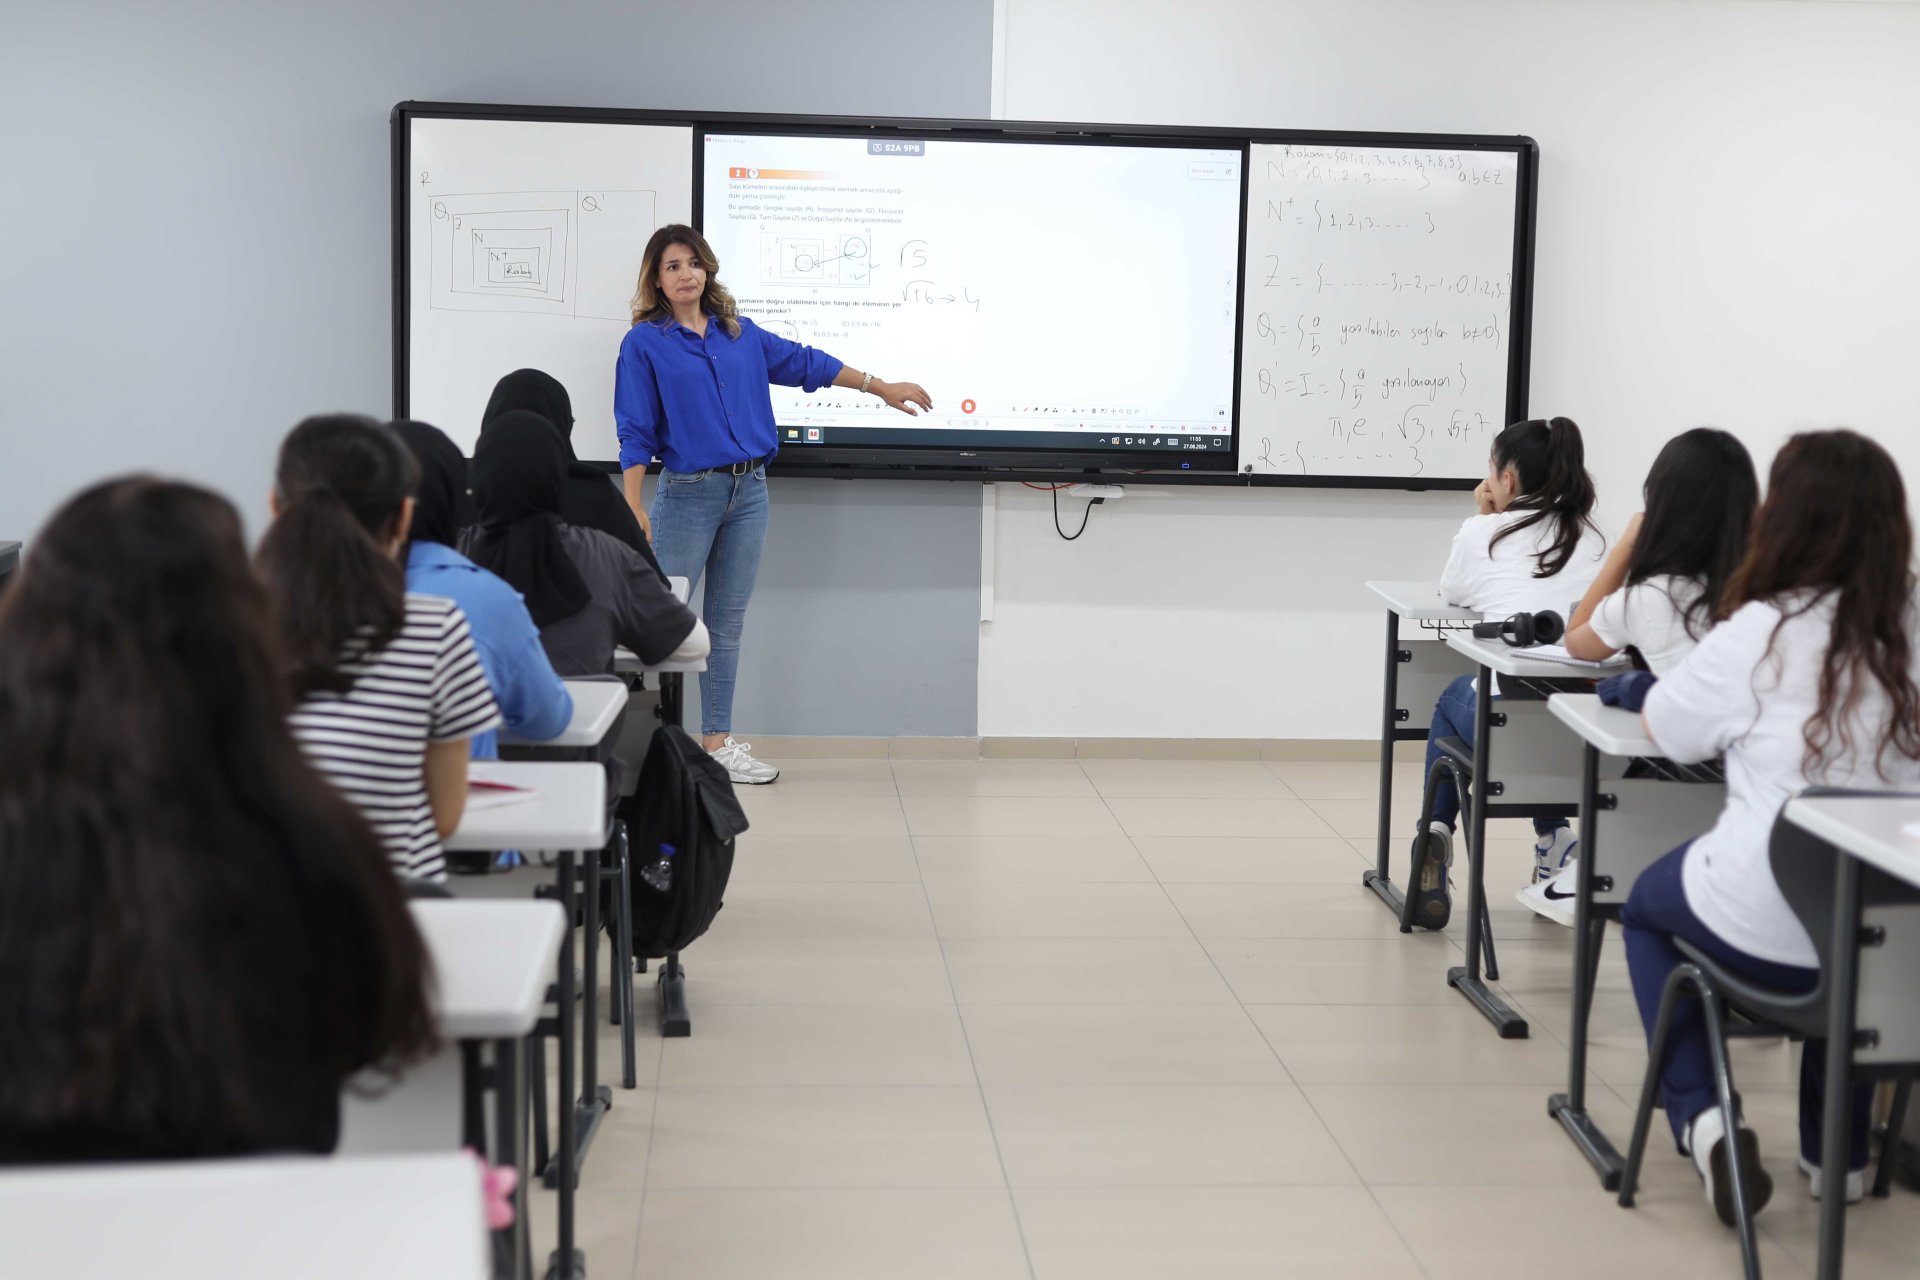 R
Q
Q'
Z
N
N+
Rakam
S2A 9PB
2 ?
Sayı kümeleri arasındaki ilişkiye örnek vermek amacıyla aşağı-
daki şema çizilmiştir.
Bu şemada; Gerçek sayılar (R), İrrasyonel sayılar (Q'), Rasyonel
Sayılar (Q), Tam Sayılar (Z) ve Doğal Sayılar (N) ile gösterilmektedir.
Q
Z
N
R
√5
√16 → 4
şemanın doğru olabilmesi için hangi iki elemanın yer
ştirmesi gerekir?
11:55
27.08.2024
Rakam = {0,1,2,3,4,5,6,7,8,9}
N = {0,1,2,3.....}
a,b ∈ Z
N+ = {1,2,3.....}
Z = {.......-3,-2,-1,0,1,2,3..}
Q = {a/b yazılabilen sayılar b≠0}
Q' = I = {a/b yazılamayan}
π, e, √3, √5+7
R = {.......}